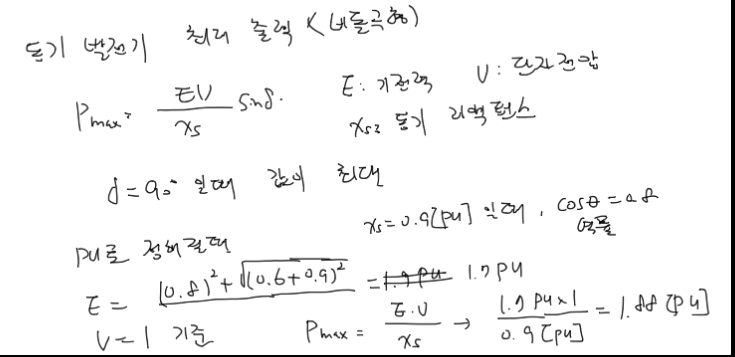 동기 발전기 최대 출력 <(비돌극형)
Pmax = EV/xs sinδ. E: 기전력 V: 단자전압
xs: 동기 리액턴스
δ=90° 일때 값이 최대
xs=0.9[pu] 일때, cosθ=0.8
PU로 정해질때
E = √(0.8)²+(0.6+0.9)² = 1.7PU
V=1 기준 Pmax = E.V/xs → 1.7PU×1/0.9[pu] = 1.88[PU]